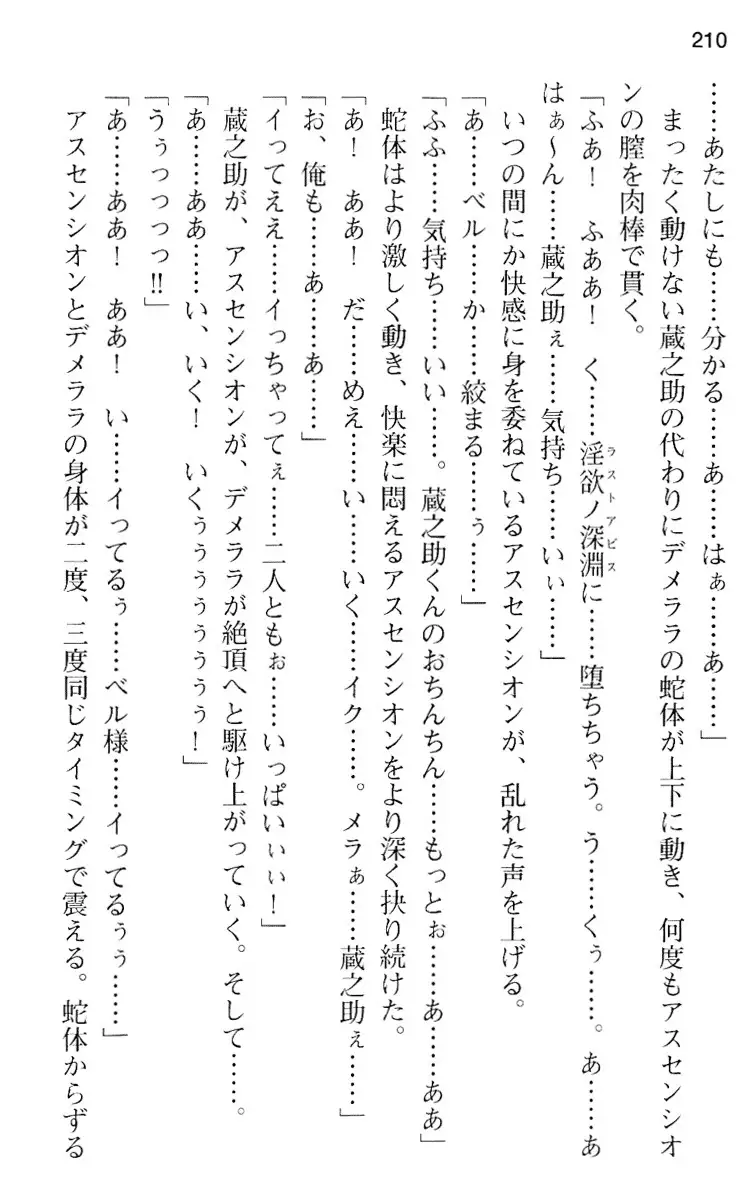 210
……あたしにも……分かる……あ……はぁ……あ……」
まったく動けない蔵之助の代わりにデメララの蛇体が上下に動き、何度もアスセンシオ
ンの膣を肉棒で貫く。
「ふぁ！　ふああ！　く……淫欲ノ深淵に……堕ちちゃう。う……くぅ……。あ……あ
ラストアビス
はぁ〜ん……蔵之助ぇ……気持ち……いぃ……」
いつの間にか快感に身を委ねているアスセンシオンが、乱れた声を上げる。
「あ……ベル……か……絞まる……ぅ……」
「ふふ……気持ち……いい……。蔵之助くんのおちんちん……もっとぉ……あ……ああ」
蛇体はより激しく動き、快楽に悶えるアスセンシオンをより深く抉り続けた。
「あ！　ああ！　だ……めえ……い……いく……イク……。メラぁ……蔵之助ぇ……」
「お、俺も……あ……あ……」
「イってええ……イっちゃってぇ……二人ともぉ……いっぱいいぃぃ！」
蔵之助が、アスセンシオンが、デメララが絶頂へと駆け上がっていく。そして……。
「あ……ああ……い、いく！　いくぅぅぅぅぅぅぅ！」
「うぅっっっっ!!」
「あ……ああ！　ああ！　い……イってるぅ……ベル様……イってるぅぅ……」
アスセンシオンとデメララの身体が二度、三度同じタイミングで震える。蛇体からずる